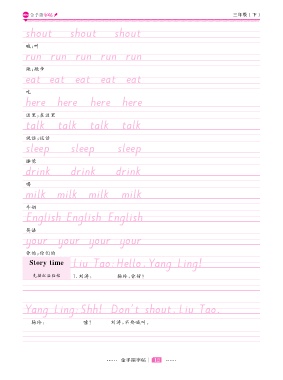 三年级(下)
shout shout shout
喊;叫
run run run run run
跑;跑步
eat eat eat eat eat
吃
here here here here
这里;在这里
talk talk talk talk
说话;谈话
sleep sleep sleep
睡觉
drink drink drink
喝
milk milk milk milk
牛奶
English English English
英语
your your your your
你的;你们的
Story time Liu Tao: Hello, Yang Ling!
1. 刘涛: 杨玲,你好!
Yang Ling: Shh! Don't shout, Liu Tao.
杨玲: 嘘! 刘涛,不要喊叫。
12